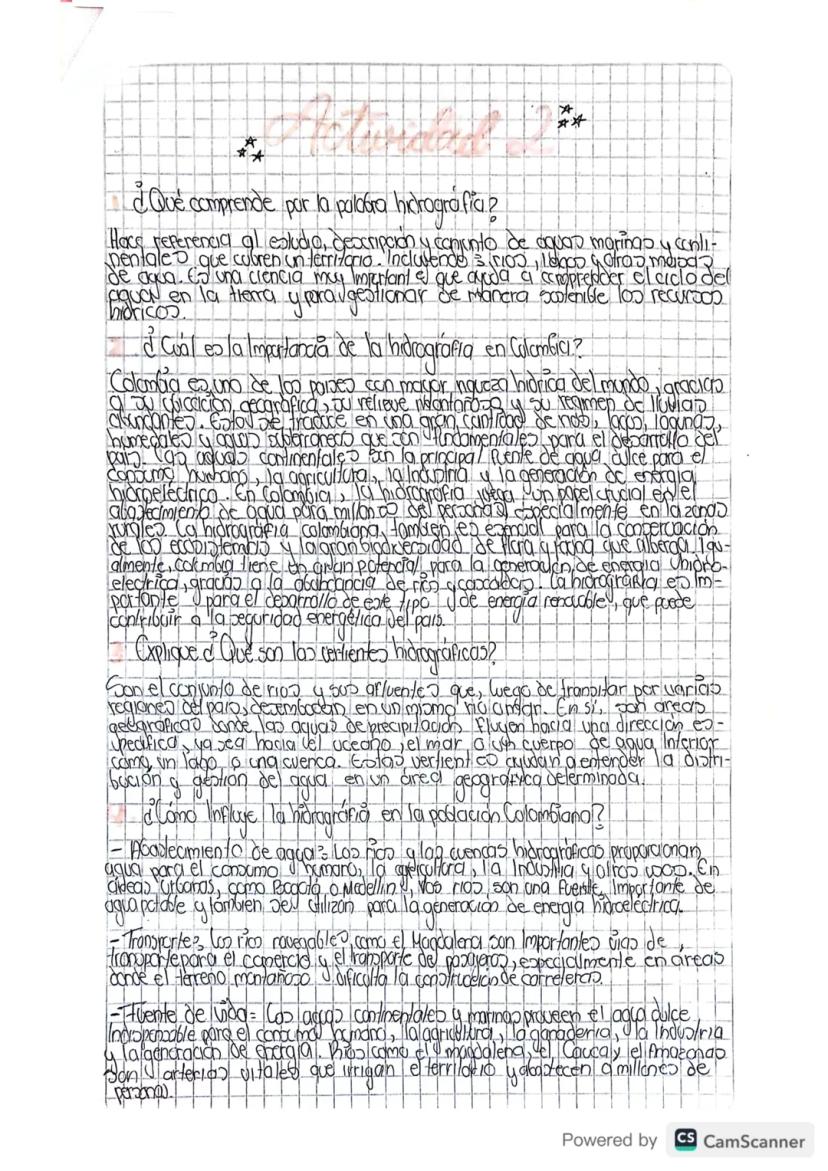 Actividad 2
1 ¿Qué comprende por la palabra hidrográfia?
Hace referencia al estudio, descripción y conjunto de aguas marinas y conti-
nentales que cubren un territorio. Incluyendo: rios, lagos y otras masas
de agua. Es una ciencia muy important e que ayuda a comprender el ciclo del
agua en la tierra y para gestionar de manera sostenible los recursos
hídricos.
2 ¿Cuál es la Importancia de la hidrografía en Colombia?
Colombia es uno de los paises con mayor riqueza hídrica del mundo, gracias
a su ubicación geográfica, su relieve montañoso y su regimen de lluvias
abundantes. Esto se traduce en una gran cantidad de rios, lagos, lagunas,
humedales y aguas subterraneas que son fundamentales para el desarrollo del
país. Las aguas continentales son la principal fuente de agua dulce para el
consumo humano, la agricultura, la Industria y la generación de energía
hidroeléctrica. En Colombia, la hidrografía juega un papel crucial en el
abastecimiento de agua para millones de personas, especialmente en la zonas
rurales. La hidrografía colombiana, tambien es esencial para la conservación
de los ecosistemas y la gran biodiversidad de flora y fauna que alberga. Igu-
almente, colombia tiene un gran potencial para la generación de energia hidro-
electrica, gracias a la abundancia de rios y cascadas. La hidrográfia es Im-
portante para el desarrollo de este tipo de energía renovable, que puede
contribuir a la seguridad energética del país.
3 Explique ¿Qué son las vertientes hidrográficas?
Son el conjunto de rios y sus afluentes que, luego de transitar por varias
regiones del país, desembocan en un mismo rio o mar. En si, son areas
geográficas donde las aguas de precipitación fluyen hacia una dirección es-
pecifica, ya sea hacia el oceano, el mar o un cuerpo de agua Interior
como un lago o una cuenca. Estas vertientes ayudan a entender la distri-
bución y gestión del agua en un área geográfica determinada.
4 ¿Cómo Influye la hidrográfia en la población Colombiana?
- Abastecimiento de agua: Los rios y las cuencas hidrográficas proporcionan
agua para el consumo humano, la agricultura, la Industria y otros usos. En
áreas urbanas, como Bogotá o Medellin, los rios son una fuente Importante de
agua potable y tambien se utilizan para la generación de energía hidroeléctrica.
- Transporte: Los rios navegables como el Magdalena son Importantes vías de
transporte para el comercio y el transporte de pasajeros, especialmente en áreas
donde el terreno montañoso dificulta la construcción de carreteras.
- Fuente de vida: Las aguas continentales y marinas proveen el agua dulce
Indispensable para el consumo humano, la agricultura, la ganaderia, la Industria
y la generación de energía. Rios como el magdalena, el Cauca y el Amazonas
son arterias vitales que irrigan el territorio y abastecen a millones de
personas.
Powered by CS CamScanner